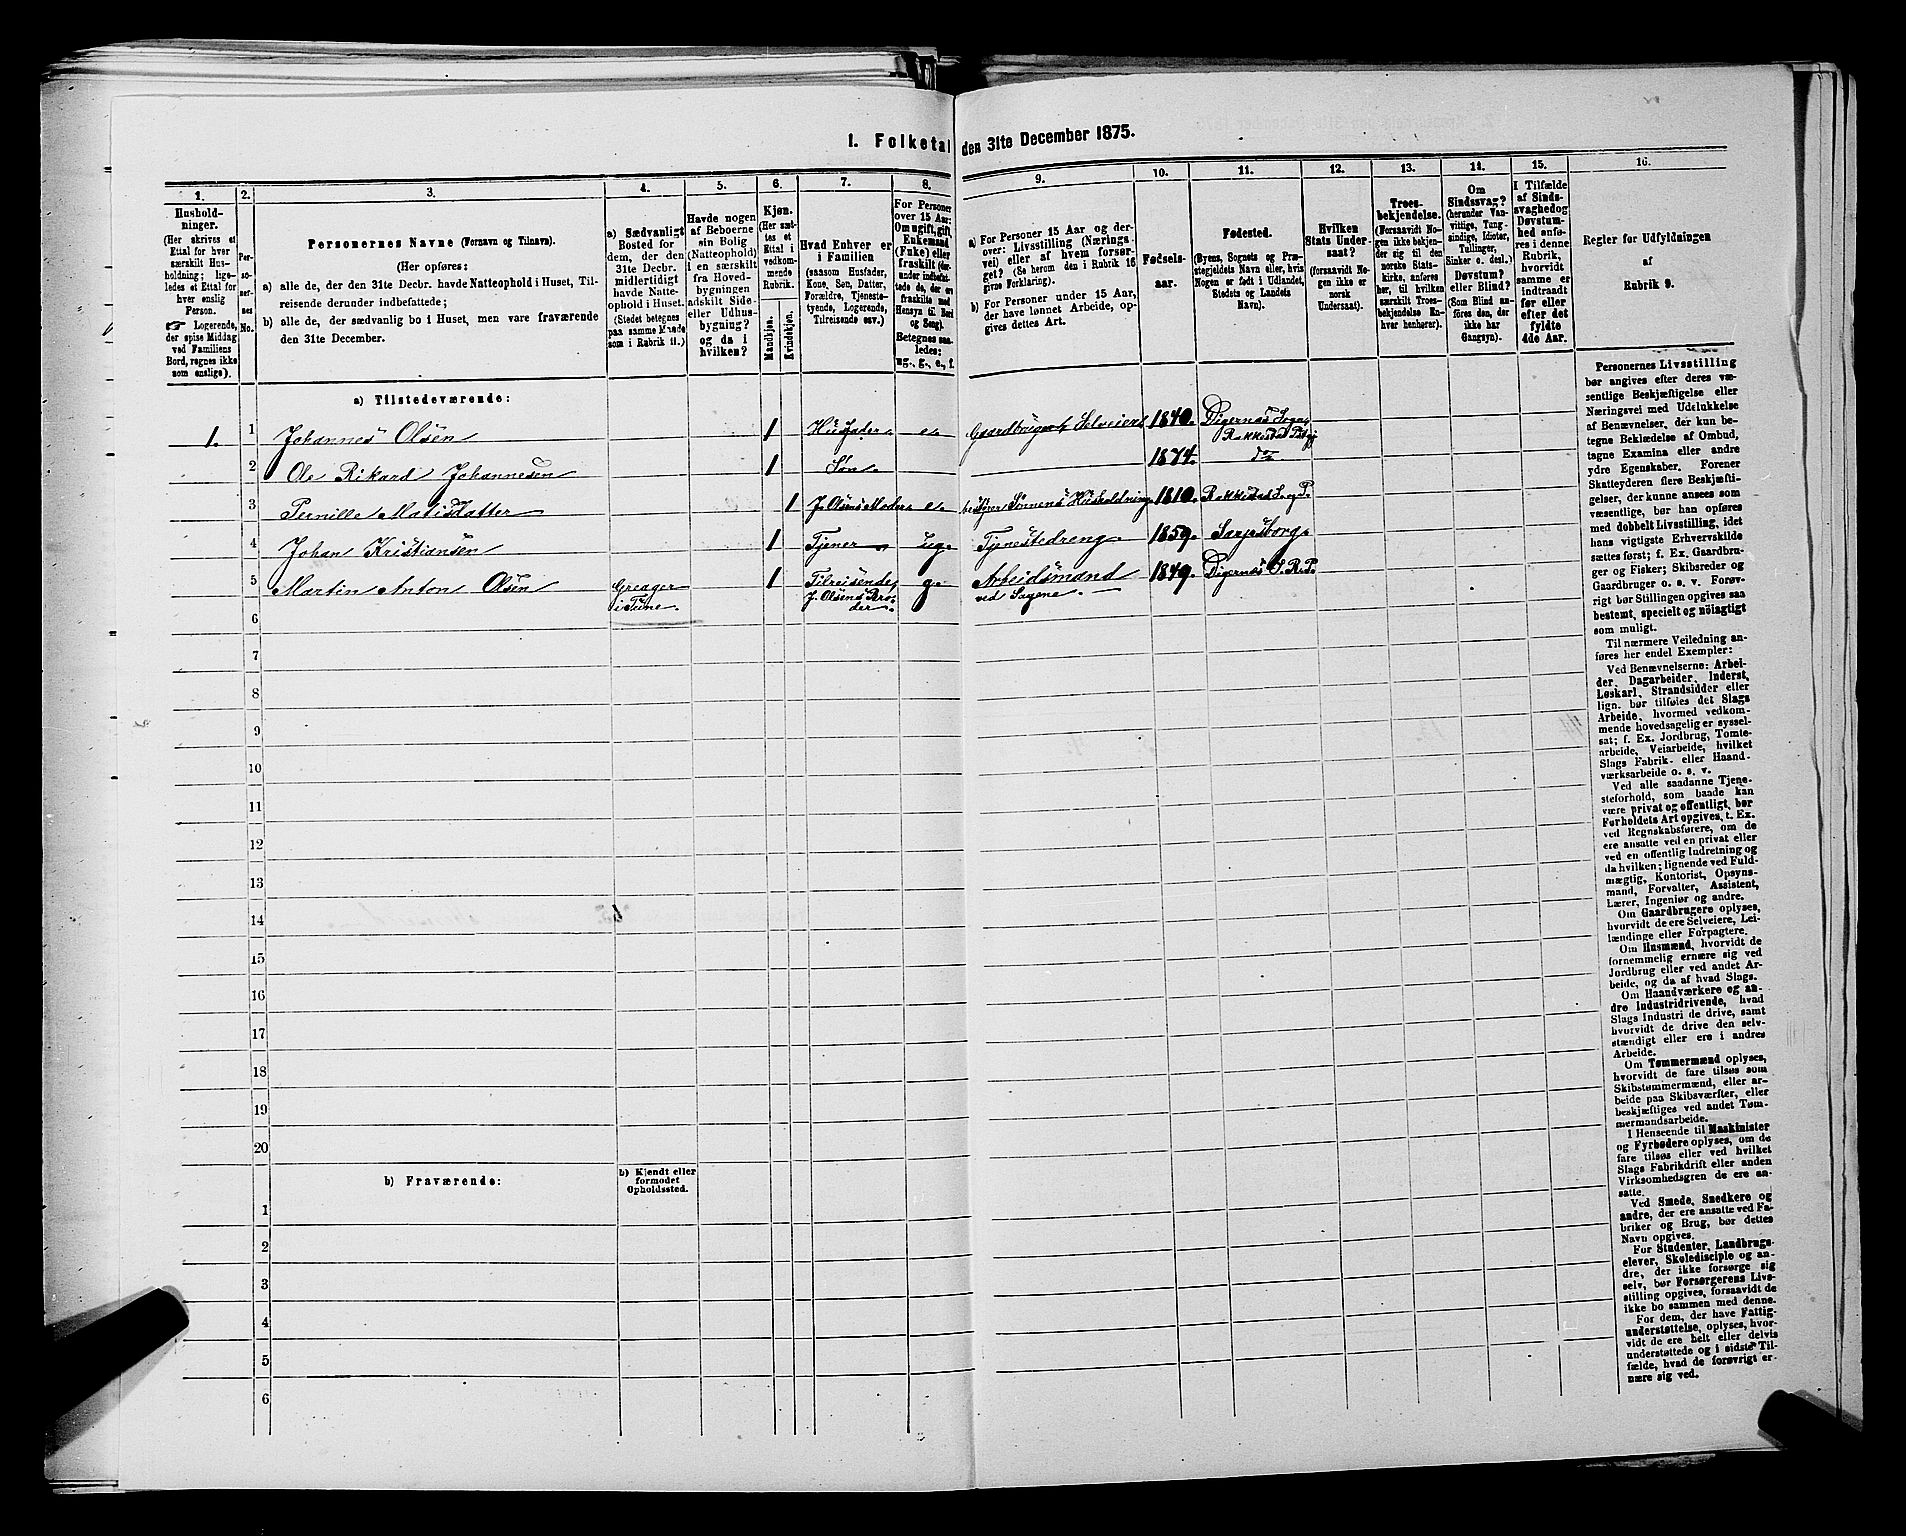 1. Folketal den 31te December 1875.
1. 2. 3. 4. 5. 6. 7. 8. 9. 10. 11. 12. 13. 14. 15. 16.
Hushold-
ninger.
(Her skrives et
Ettal for hver
særskilt Hus-
holdning; lige-
ledes et Ettal for
hver enslig
Person.
☞ Logerende,
der spise Middag
ved Familiens
Bord, regnes ikke
som enslige).
Per-
so-
ner-
nes
No.
Personernes Navne (Fornavn og Tilnavn).
(Her opføres:
a) alle de, der den 31te Decbr. havde Natteophold i Huset, Til-
reisende derunder indbefattede;
b) alle de, der sædvanlig bo i Huset, men vare fraværende
den 31te December.
a) Sædvanligt
Bosted for
dem, der den
31te Decbr.
midlertidigt
havde Natte-
ophold i Huset.
(Stedet betegnes
paa samme Maade
som i Rubrik 11.)
Havde nogen
af Beboerne
sin Bolig
(Natteophold)
i en særskilt
fra Hoved-
bygningen
adskilt Side-
eller Udhus-
bygning?
og da i
hvilken?
Kjøn.
(Her sæt-
tes et
Ettal i
vedkom-
mende
Rubrik.
Mandkjøn.
Kvindekjøn.
Hvad Enhver er
i Familien
(saasom Husfader,
Kone, Søn, Datter,
Forældre, Tjeneste-
tyende, Logerende,
Tilreisende osv.)
For Personer
over 15 Aar:
Om ugift, gift,
Enkemand
(Enke) eller
fraskilt (der-
under indbefat-
tede de, der ere
fraskilte med
Hensyn til Bord
og Seng).
Betegnes saa-
ledes:
ug., g., e., f.
a) For Personer 15 Aar og der-
over: Livsstilling (Nærings-
vei) eller af hvem forsør-
get? (Se herom den i Rubrik 16
givne Forklaring).
b) For Personer under 15 Aar,
der have lønnet Arbeide, op-
gives dettes Art.
Fødsels-
aar.
Fødested.
(Byens, Sognets og Præ-
stegjeldets Navn eller, hvis
Nogen er født i Udlandet,
Stedets og Landets
Navn).
Hvilken
Stats Under-
saat?
(forsaavidt No-
gen ikke er
norsk
Undersaat).
Troes-
bekjendelse.
(Forsaavidt No-
gen ikke bekjen-
der sig til den
norske Stats-
kirke, anføres
her, til hvilken
særskilt Troes-
bekjendelse En-
hver henhører).
Om
Sindssvag?
(herunder Van-
vittige, Tung-
sindige, Idioter,
Tullinger,
Sinker o. desl.)
Døvstum?
eller Blind?
(Som Blind an-
føres den, der
ikke har
Gangsyn).
I Tilfælde
af Sinds-
svaghed og
Døvstum-
hed anfø-
res i denne
Rubrik,
hvorvidt
samme er
indtraadt
før eller
efter det
fyldte
4de Aar.
Regler for Udfyldningen
af
Rubrik 9.
a) Tilstedeværende:
1. 1 Johannes Olsen 1 Husfader e. Gaardbruger, Selveier 1840. Digernæs Sogn,
Rakkestad Prgj
2 Ole Rikard Johannesen 1 Søn 1874. do
3 Pernille Matisdatter 1 J. Olsens Moder e. bestyrer Sønnens Husholdning 1810. Rakkestad S. og P.
4 Johan Kristiansen 1 Tjener ug. Tjenestedreng 1859. Sarpsborg
5 Martin Anton Olsen Greager
i Tune. 1 Tilreisende,
J. Olsens Bro-
der. g. Arbeidsmand
ved Sagene. 1849. Digernæs S. R. P.
6
7
8
9
10
11
12
13
14
15
16
17
18
19
20
b) Fraværende:
b) Kjendt eller
formodet
Opholdssted.
1
2
3
4
5
6
Personernes Livsstilling
bør angives efter deres væ-
sentlige Beskjæftigelse eller
Næringsvei med Udelukkelse
af Benævnelser, der kun be-
tegne Beklædelse af Ombud,
tagne Examina eller andre
ydre Egenskaber. Forener
Skatteyderen flere Beskjæfti-
gelser, der kunne ansees som
væsentlige, bør han opføres
med dobbelt Livsstilling, idet
hans vigtigste Erhvervskilde
sættes først; f. Ex. Gaardbru-
ger og Fisker; Skibsreder og
Gaardbruger o. s. v. Forøv-
rigt bør Stillingen opgives saa
bestemt, specielt og nøiagtigt
som muligt.
Til nærmere Veiledning an-
føres her endel Exempler:
Ved Benævnelserne: Arbei-
der, Dagarbeider, Inderst,
Løskarl, Strandsidder eller
lign. bør tilføies det Slags
Arbeide, hvormed vedkom-
mende hovedsagelig er syssel-
sat; f. Ex. Jordbrug, Tomte-
arbeide, Veiarbeide, hvilket
Slags Fabrik- eller Haand-
værksarbeide o. s. v.
Ved alle saadanne Tjene-
steforhold, som baade kan
være privat og offentligt, bør
Forholdets Art opgives, t. Ex.
ved Regnskabsførere, om de
ere ansatte ved en privat eller
ved en offentlig Indretning og
da hvilken; lignende ved Fuld-
mægtig, Kontorist, Opsyns-
mand, Forvalter, Assistent,
Lærer, Ingeniør og andre.
Om Gaardbrugere oplyses,
hvorvidt de ere Selveiere, Lei-
lændinge eller Forpagtere.
Om Husmænd, hvorvidt de
fornemmelig ernære sig ved
Jordbrug eller ved andet Ar-
beide, og da af hvad Slags.
Om Haandværkere og an-
dre Industridrivende, hvad
Slags Industri de drive, samt
hvorvidt de drive den selv-
stændigt eller ere i andres
Arbeide.
Om Tømmermænd oplyses,
hvorvidt de fare tilsøs som
Skibstømmermænd, eller ar-
beide paa Skibsværfter, eller
beskjæftiges ved andet Tøm-
mermandsarbeide.
I Henseende til Maskinister
og Fyrbødere oplyses, om de
fare tilsøs eller ved hvilket
Slags Fabrikdrift eller anden
Virksomhedsgren de ere an-
satte.
Ved Smede, Snedkere og
andre, der ere ansatte ved Fa-
briker og Brug, bør dettes
Navn opgives.
For Studenter, Landbrugs-
elever, Skoledisciple og an-
dre, der ikke forsørge sig
selv, bør Forsørgerens Livs-
stilling opgives, forsaavidt de
ikke bo sammen med denne.
For dem, der have Fattig-
understøttelse, oplyses, hvor-
vidt de ere helt eller delvis
understøttede og i sidste Til-
fælde, hvad de forøvrigt er-
nære sig ved.